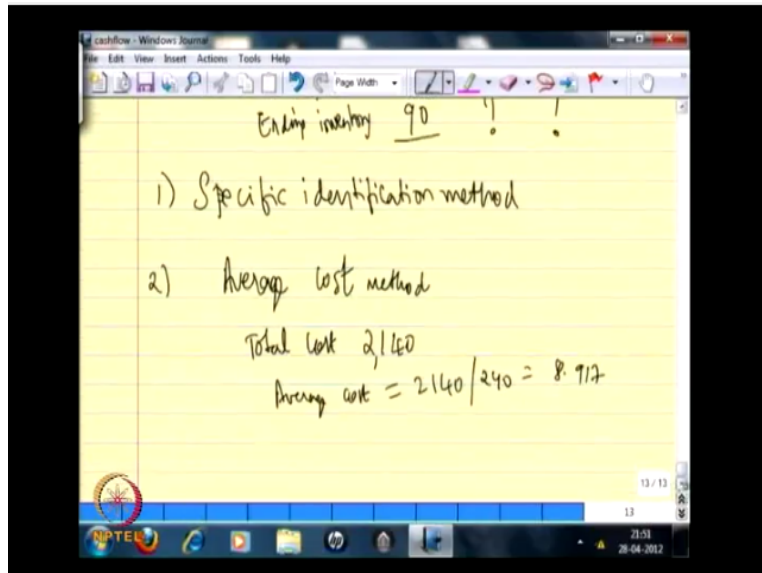 cashflow - Windows Journal
File Edit View Insert Actions Tools Help
Page Width
Ending inventory 90 ! !
1) Specific identification method
2) Average cost method
Total cost 2,140
Average cost = 2140/240 = 8.917
13 / 13
13
NPTEL
hp
21:51
28-04-2012